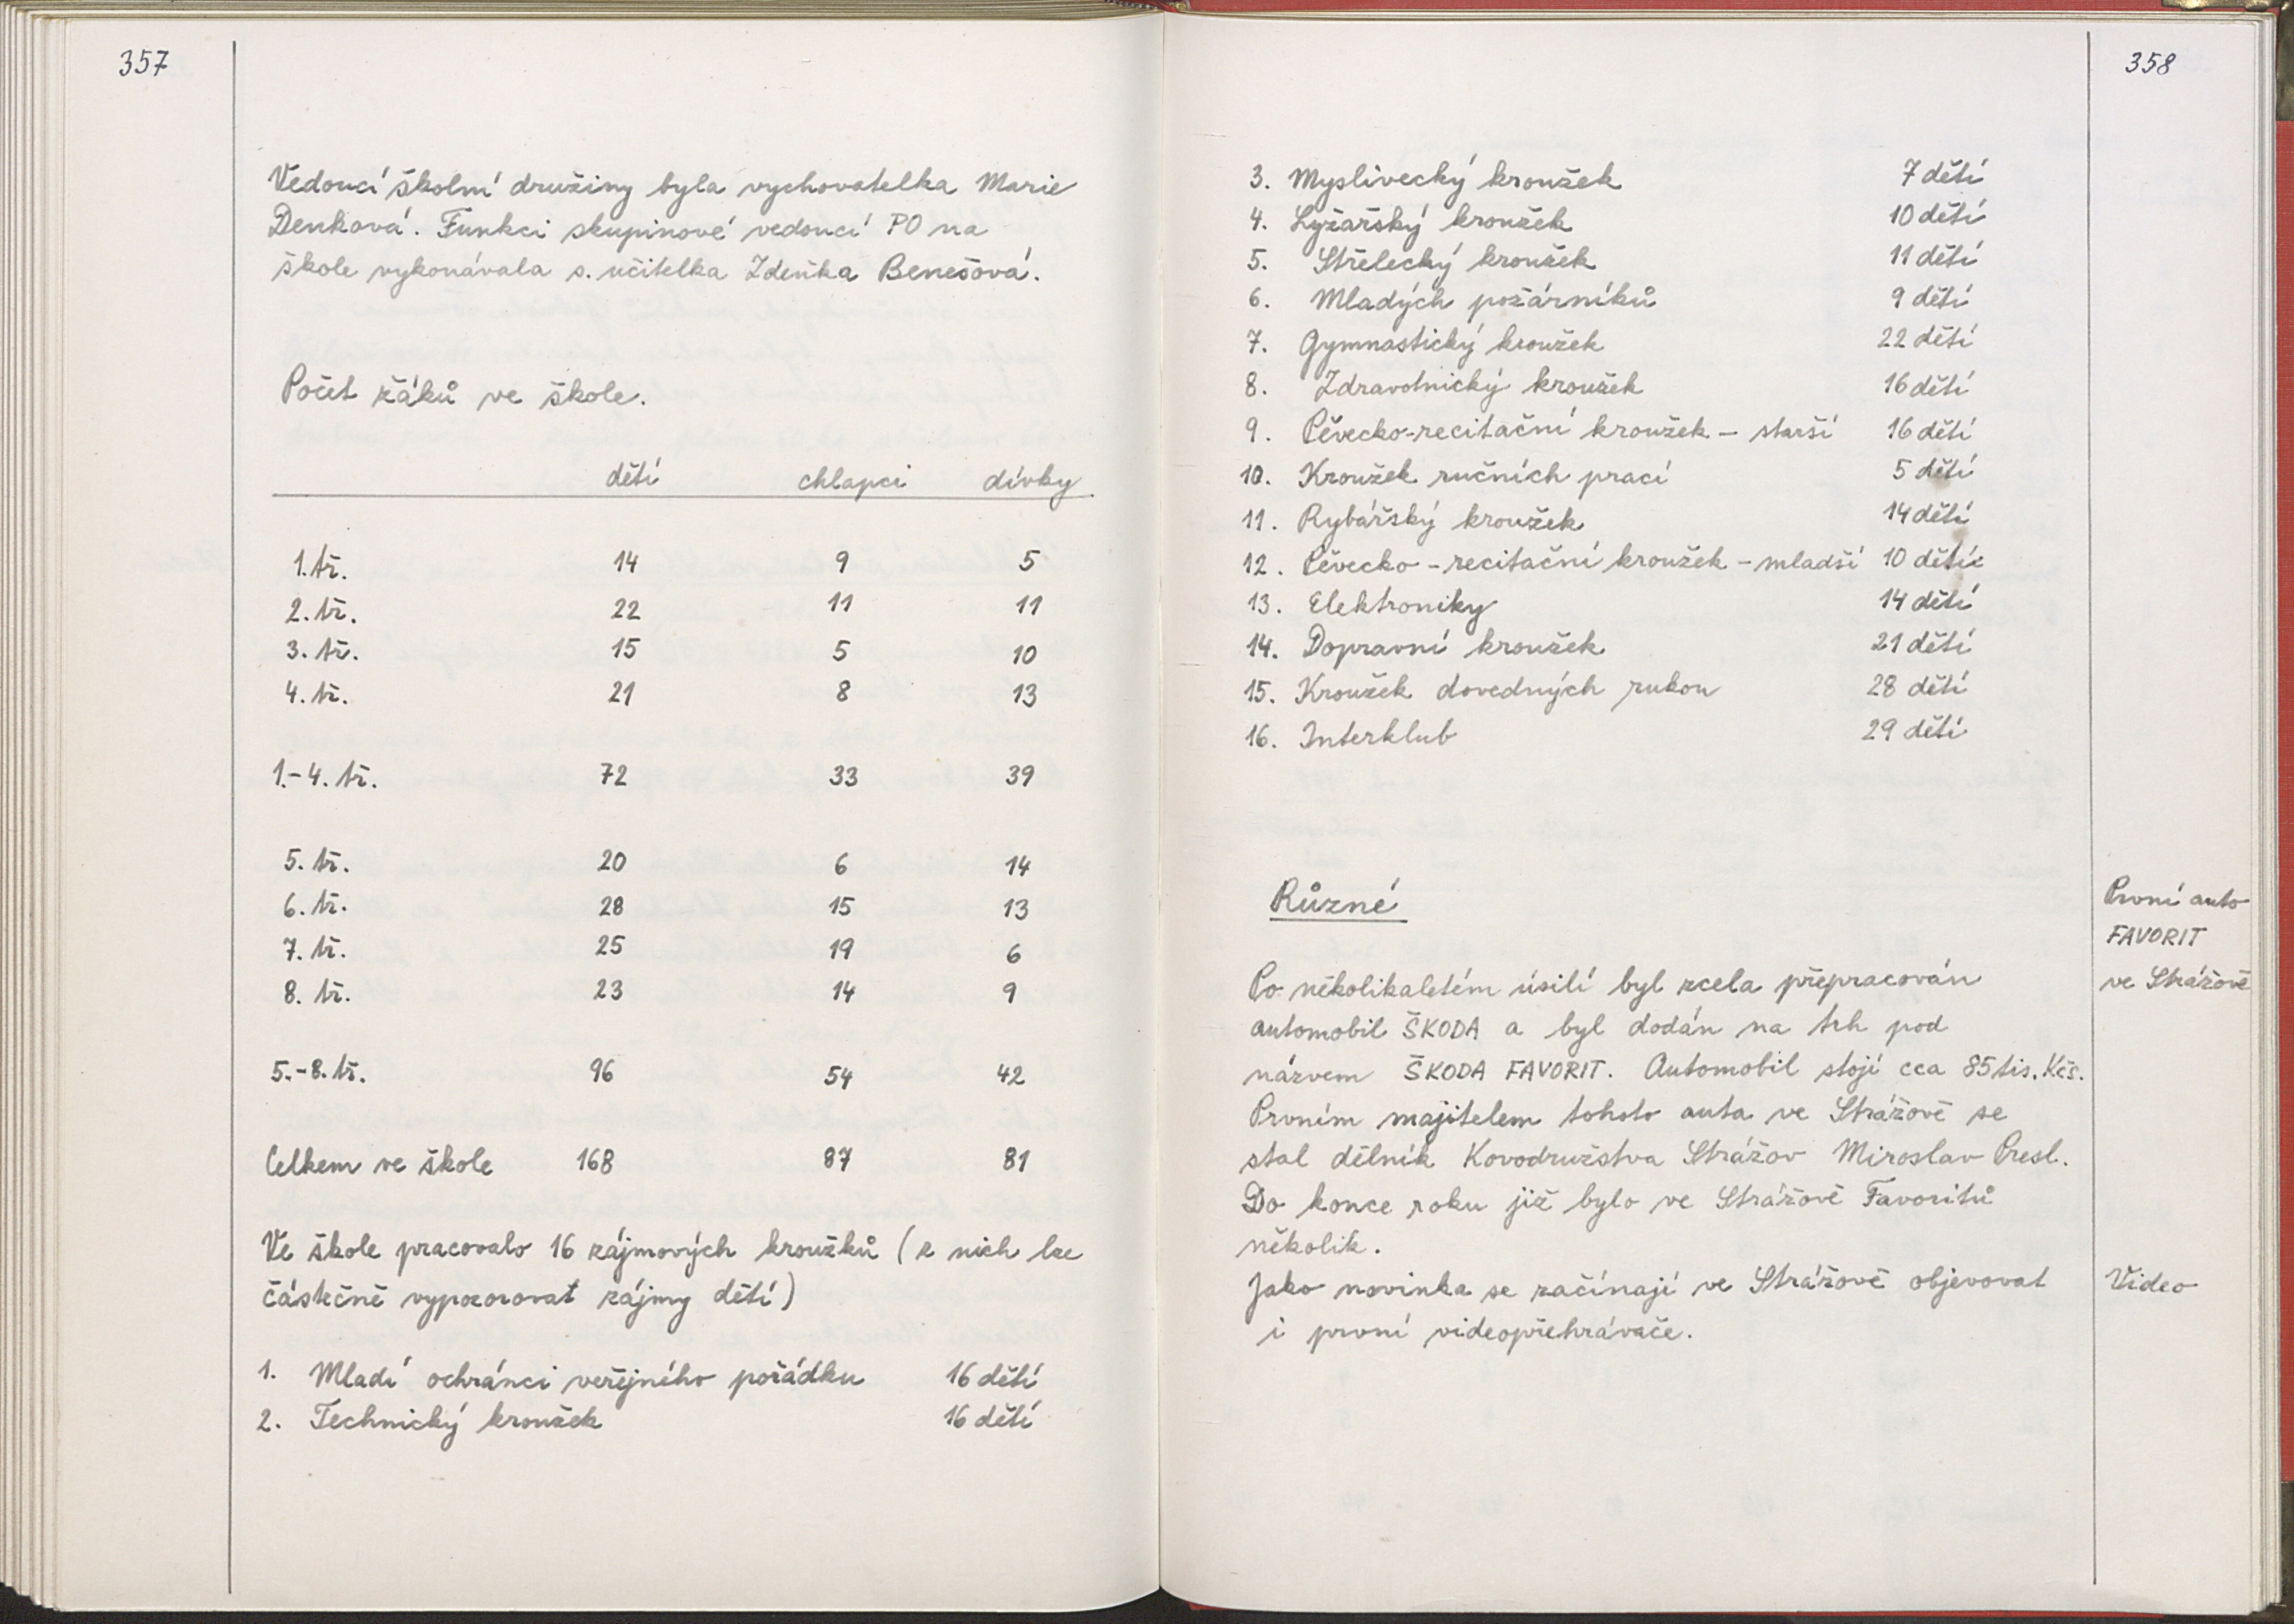 357
Vedoucí školní družiny byla vychovatelka Marie
Denková. Funkci skupinové vedoucí PO na
škole vykonávala s. učitelka Zdeňka Benešová.
Počet žáků ve škole.
dětí chlapci dívky
1. tř. 14 9 5
2. tř. 22 11 11
3. tř. 15 5 10
4. tř. 21 8 13
1.-4. tř. 72 33 39
5. tř. 20 6 14
6. tř. 28 15 13
7. tř. 25 19 6
8. tř. 23 14 9
5.-8. tř. 96 54 42
Celkem ve škole 168 87 81
Ve škole pracovalo 16 zájmových kroužků (z nich lze
částečně vypozorovat zájmy dětí)
1. Mladí ochránci veřejného pořádku 16 dětí
2. Technický kroužek 16 dětí
358
3. Myslivecký kroužek 7 dětí
4. Lyžařský kroužek 10 dětí
5. Střelecký kroužek 11 dětí
6. Mladých požárníků 9 dětí
7. Gymnastický kroužek 22 dětí
8. Zdravotnický kroužek 16 dětí
9. Pěvecko-recitační kroužek - starší 16 dětí
10. Kroužek ručních prací 5 dětí
11. Rybářský kroužek 14 dětí
12. Pěvecko-recitační kroužek - mladší 10 dětí
13. Elektroniky 14 dětí
14. Dopravní kroužek 21 dětí
15. Kroužek dovedných rukou 28 dětí
16. Interklub 29 dětí
Různé
První auto
FAVORIT
ve Strážově
Po několikaletém úsilí byl zcela přepracován
automobil ŠKODA a byl dodán na trh pod
názvem ŠKODA FAVORIT. Automobil stojí cca 85 tis. Kčs.
Prvním majitelem tohoto auta ve Strážově se
stal dělník Kovodružstva Strážov Miroslav Presl.
Do konce roku již bylo ve Strážově Favoritů
několik.
Jako novinka se začínají ve Strážově objevovat
i první videopřehrávače.
Video